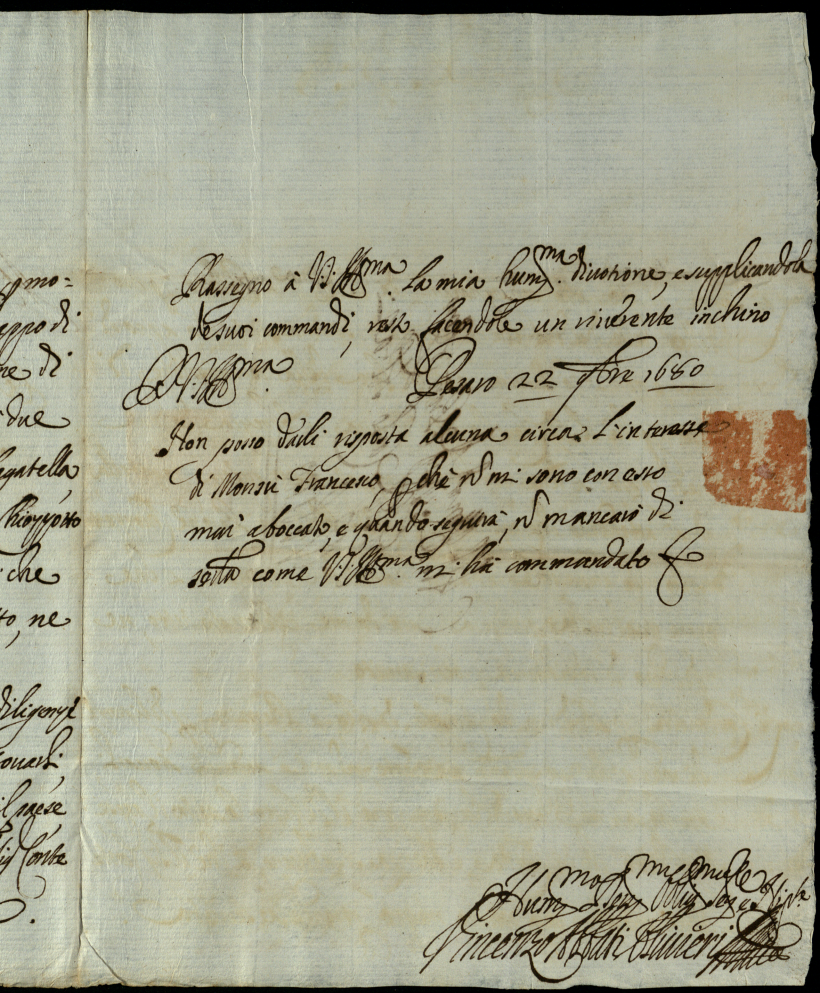 pmo=
eppo di
ne di
due
egatella
che
to, ne
diligenze
ouarli,
il paese
Sig.r Conte
Rassegno à V.S. Ill.ma la mia hum.ma diuotione, e supplicandola
de suoi commandi, resto facendole un riuerente inchino
D V.S. Ill.ma Pesaro 22 1680
Non posso darli risposta alcuna circa l'interesse
di Monsù Francesco, perchè nõ mi sono con esso
mai aboccato, e quando seguirà, nõ mancarò di
come V.S. Ill.ma mi hà commandato &
Hum.mo Ser.re
Vincenzo Abbati Oliuieri